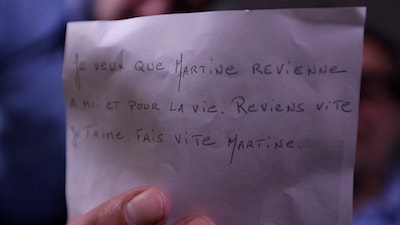 Je veux que Martine revienne
a moi et pour la vie. Reviens vite
je t'aime. Fais vite Martine.